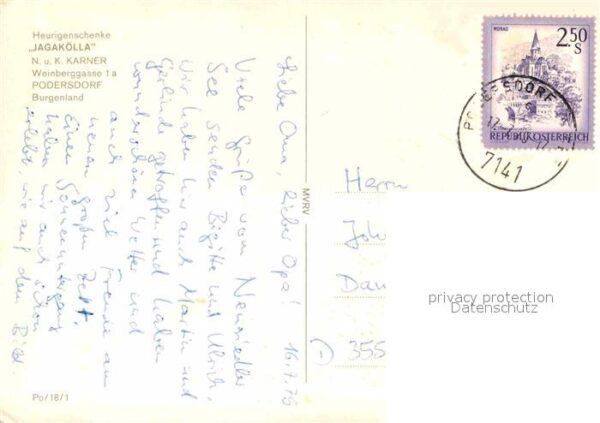 Heurigenschenke
„JAGAKÖLLA"
N. u. K. KARNER
Weinberggasse 1a
PODERSDORF
Burgenland
16.7.75
Liebe Oma, lieber Opa!
Viele Grüße vom Neusiedler
See senden Birgitte und Ulrich.
Wir haben hier auch Martin und
Gerlinde getroffen und haben
wunderschönes Wetter und
auch viel Freude am
neuen großen Zelt.
Einen Sonnenuntergang
haben wir auch schon
erlebt, wie auf dem Bild.
Po/18/1
MVRV
MURAU
2.50
S
REPUBLIK ÖSTERREICH
7141
Herrn
Joh
Dau
355
privacy protection
Datenschutz